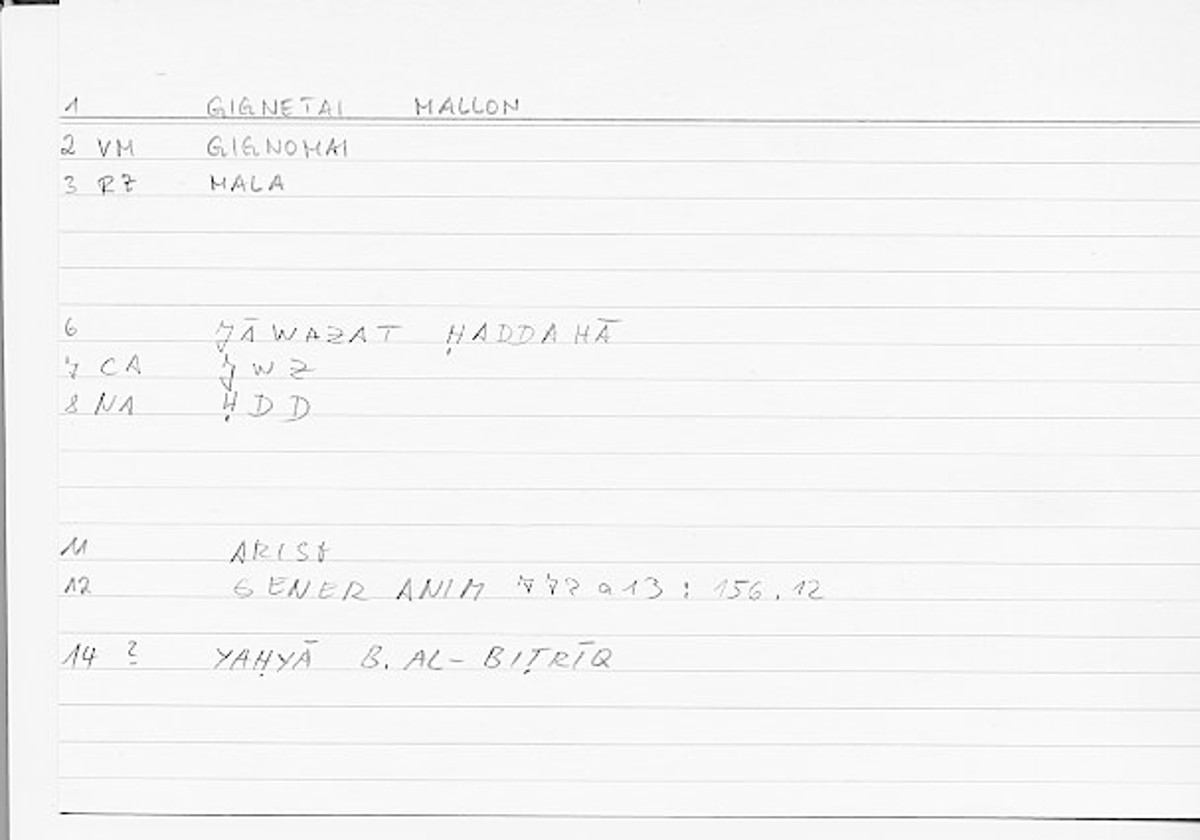 1 GIGNETAI MALLON
2 VM GIGNOMAI
3 RZ MALA
6 JĀWAZAT ḤADDAHĀ
7 CA JWZ
8 NA ḤDD
11 ARIST
12 GENER ANIM 772 a 13 : 156.12
14 ? YAḤYĀ B. AL-BIṬRĪQ